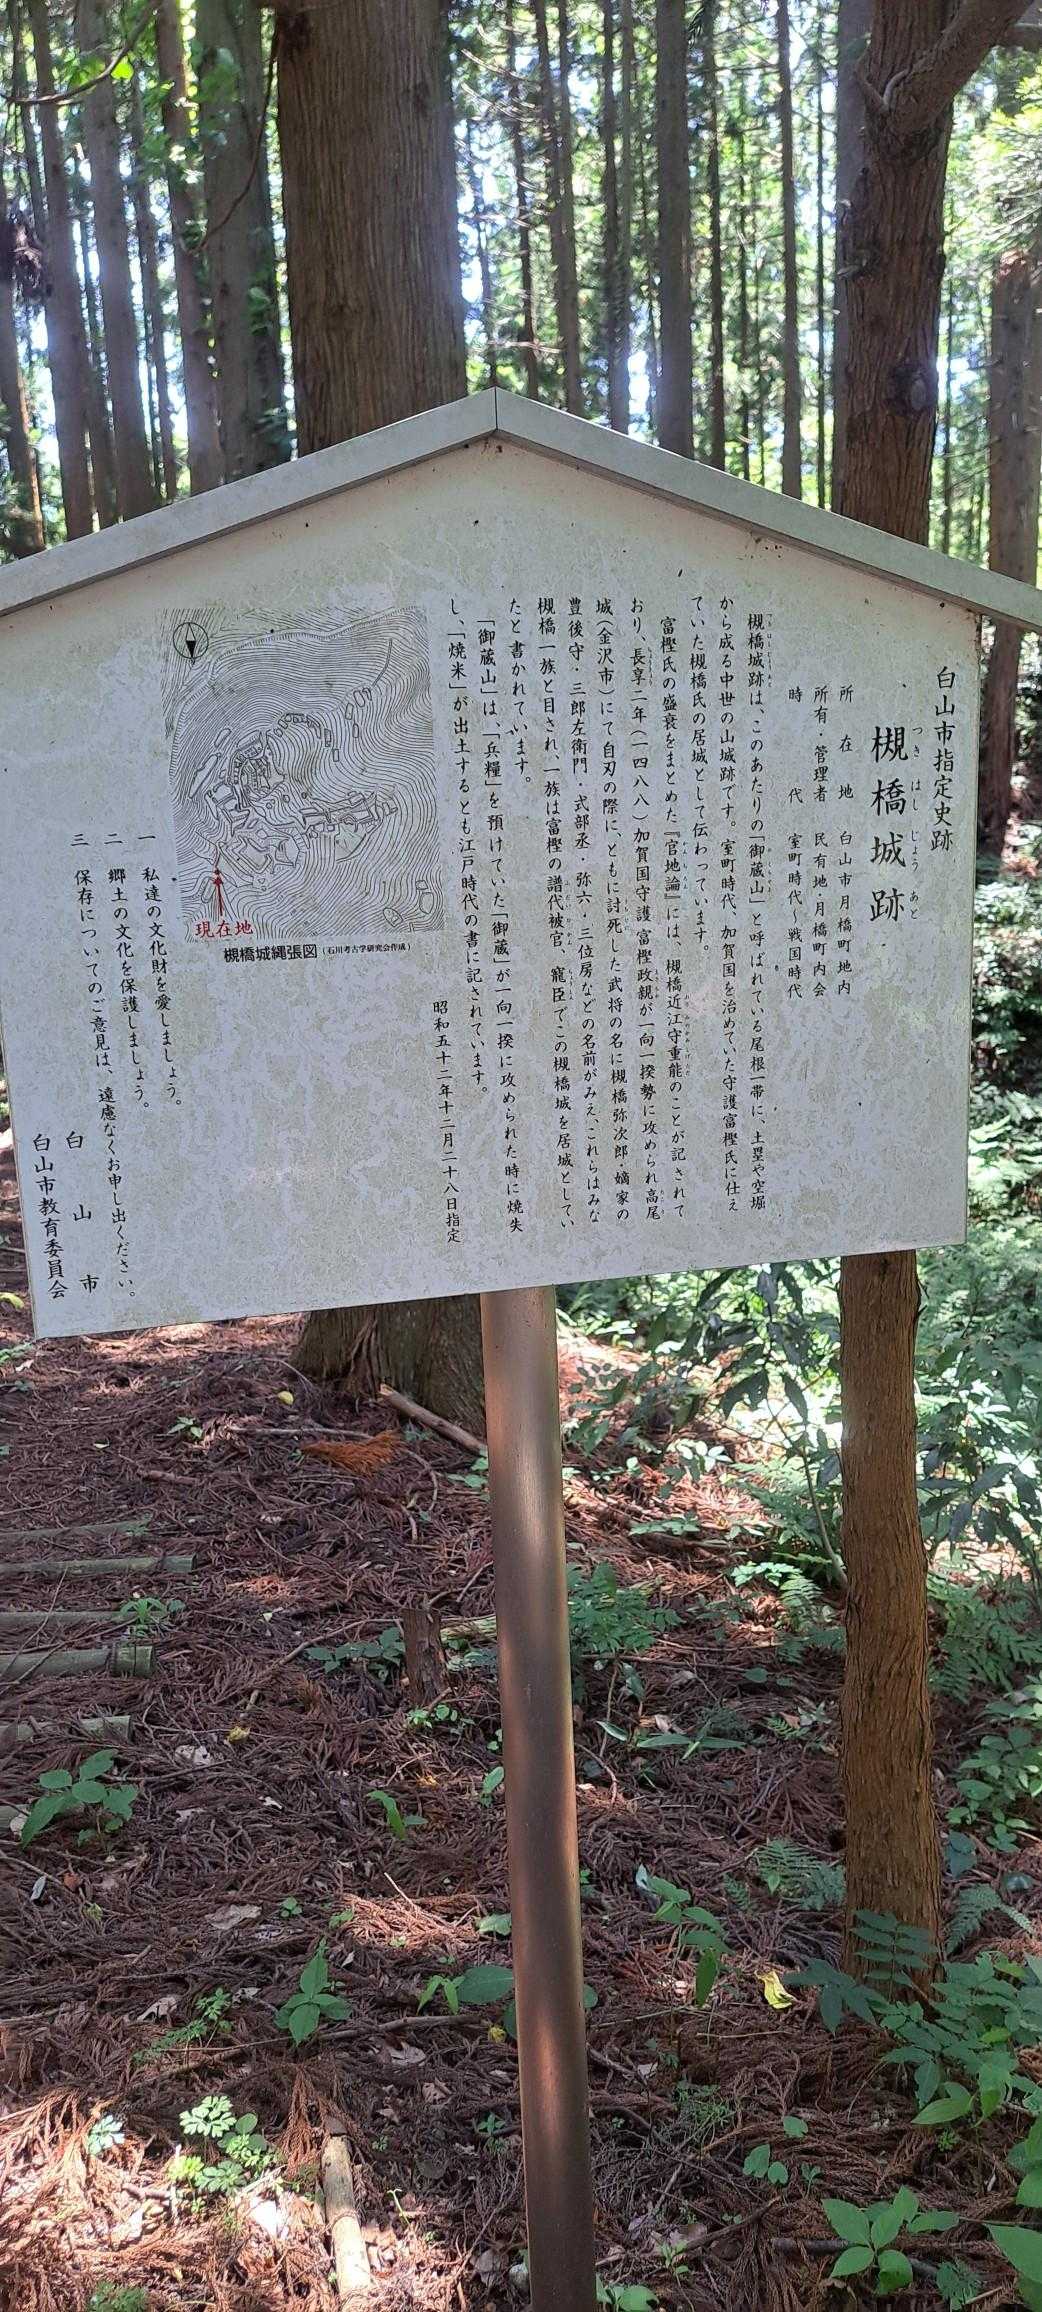 白山市指定史跡
つきはしじょうあと
槻橋城跡
所在地 白山市月橋町地内
所有・管理者 民有地・月橋町内会
時代 室町時代～戦国時代
槻橋城跡は、このあたりの「御蔵山」と呼ばれている尾根一帯に、土塁や空堀
から成る中世の山城跡です。室町時代、加賀国を治めていた守護富樫氏に仕え
ていた槻橋氏の居城として伝わっています。
富樫氏の盛衰をまとめた『官地論』には、槻橋近江守重能のことが記されて
おり、長享二年（一四八八）加賀国守護富樫政親が一向一揆勢に攻められ高尾
城（金沢市）にて自刃の際に、ともに討死した武将の名に槻橋弥次郎・嫡家の
豊後守・三郎左衛門・式部丞・弥六・三位房などの名前がみえ、これらはみな
槻橋一族と目され、一族は富樫の譜代被官、寵臣でこの槻橋城を居城としてい
たと書かれています。
「御蔵山」は、「兵糧」を預けていた「御蔵」が一向一揆に攻められた時に焼失
し、「焼米」が出土するとも江戸時代の書に記されています。
昭和五十二年十二月二十八日指定
現在地
槻橋城縄張図（石川考古学研究会作成）
一 私達の文化財を愛しましょう。
二 郷土の文化を保護しましょう。
三 保存についてのご意見は、遠慮なくお申し出ください。
白山市
白山市教育委員会